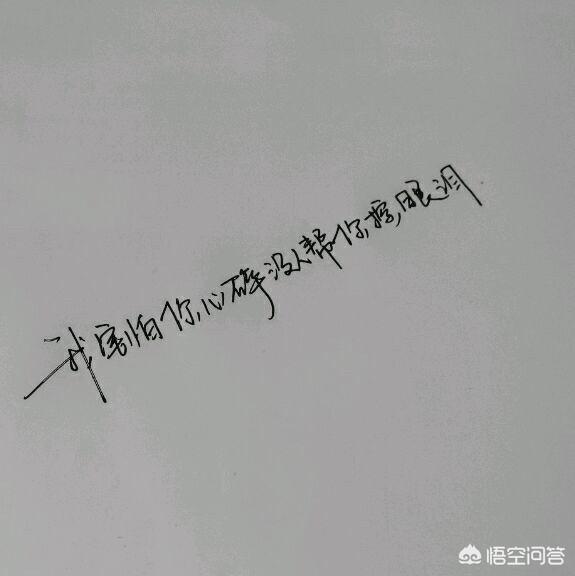 我害怕你心碎没人帮你擦眼泪
悟空问答